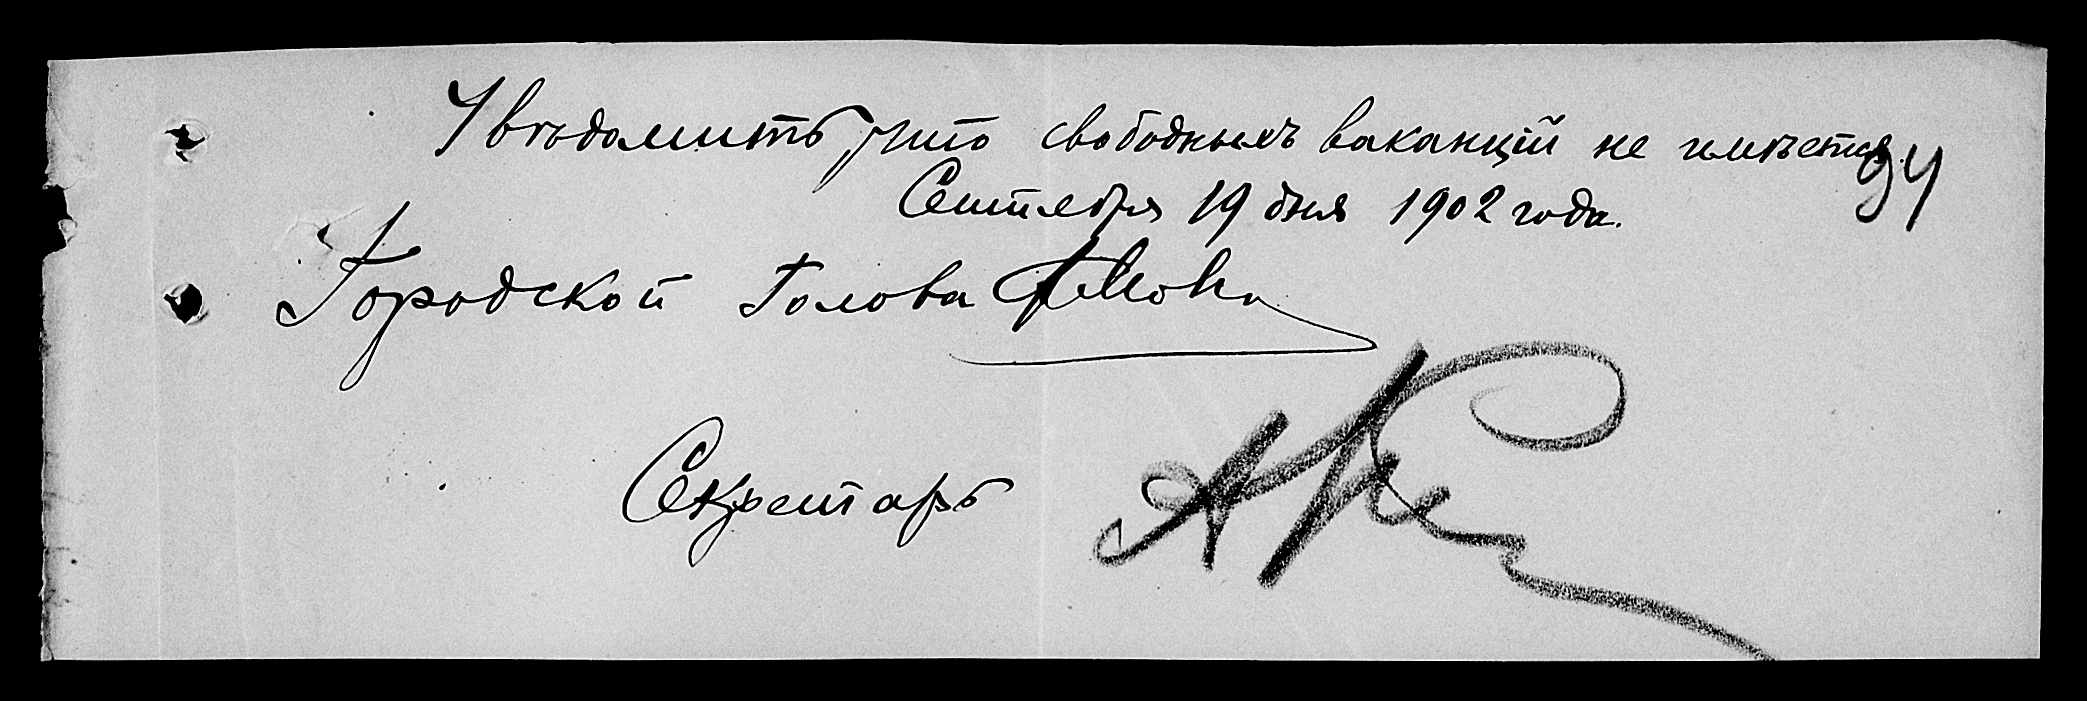 Увѣдомить, что свободныхъ ваканцій не имѣется.
94
Сентября 19 дня 1902 года.
Городской Голова
Секретарь